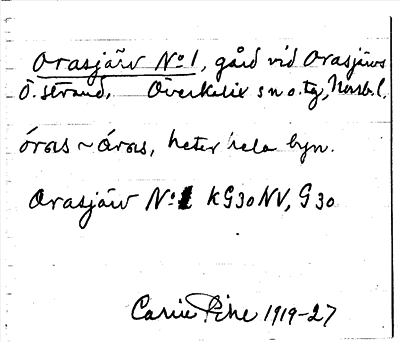 Orasjärv No 1, gård vid Orasjärvs
ö. strand, Överkalix sn o. tg, Norrb. l.
óras ~ óras, heter hela byn.
Orasjärv No 1 KG30NV, G30
Carin Pihl 1919-27